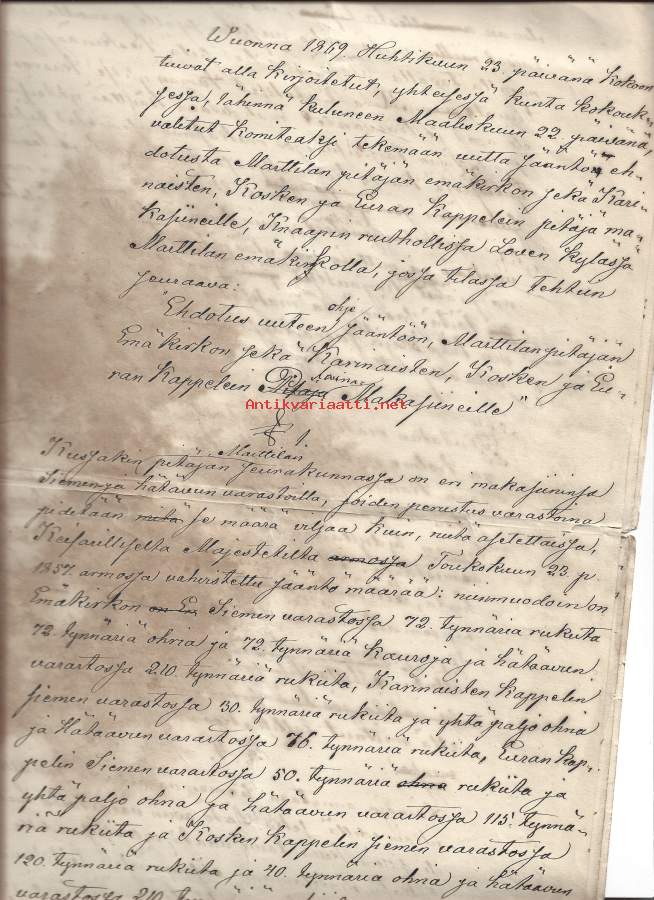 Wuonna 1869. Huhtikuun 23. päivänä kokoon
tuivat alla kirjoitetut, yhteisessä kunta kokouk-
sessa, lähinnä kuluneen Maaliskuun 22. päivänä,
valitut komiteaksi tekemään uutta jääntöä eh-
dotusta Marttilan pitäjän emäkirkon sekä Kari-
naisten, Kosken ja Euran kappelein pitäjä ma-
kasiineille, Knaapin rusthollissa Loven kylässä
Marttilan emäkirkolla, jossa tilassa tehtiin
seuraava:
"Ehdotus uuteen ohje jääntöön, Marttilan pitäjän
Emäkirkon sekä Karinaisten, Kosken ja Eu-
ran kappelein Pitäjä Laina Makasiineille"
Antikvariaatti.net
§ 1.
Kussakin pitäjän Marttilan seurakunnassa on eri makasiininsa
Siemen ja hätäavun varastoilla, joiden perustus varastoina
pidetään mitä se määrä viljaa kuin, niitä asetettaissa,
Keisarilliselta Majestetilta armossa Toukokuun 23. p.
1857. armossa vahvistettu jääntö määrää: niinmuodoin on
Emäkirkon on Eu Siemen varastossa 72. tynnäriä rukiita
72. tynnäriä ohria ja 72. tynnäriä kauroja ja hätäavun
varastossa 210. tynnäriä rukiita, Karinaisten kappelin
siemen varastossa 30. tynnäriä rukiita ja yhtä paljo ohria
ja hätäavun varastossa 76. tynnäriä rukiita, Euran kap-
pelin Siemen varastossa 50. tynnäriä ohria rukiita ja
yhtä paljo ohria ja hätäavun varastossa 115. tynnä-
riä rukiita ja Kosken kappelin siemen varastossa
120. tynnäriä rukiita ja 40. tynnäriä ohria ja hätäavun
varastossa 210. tynnäriä